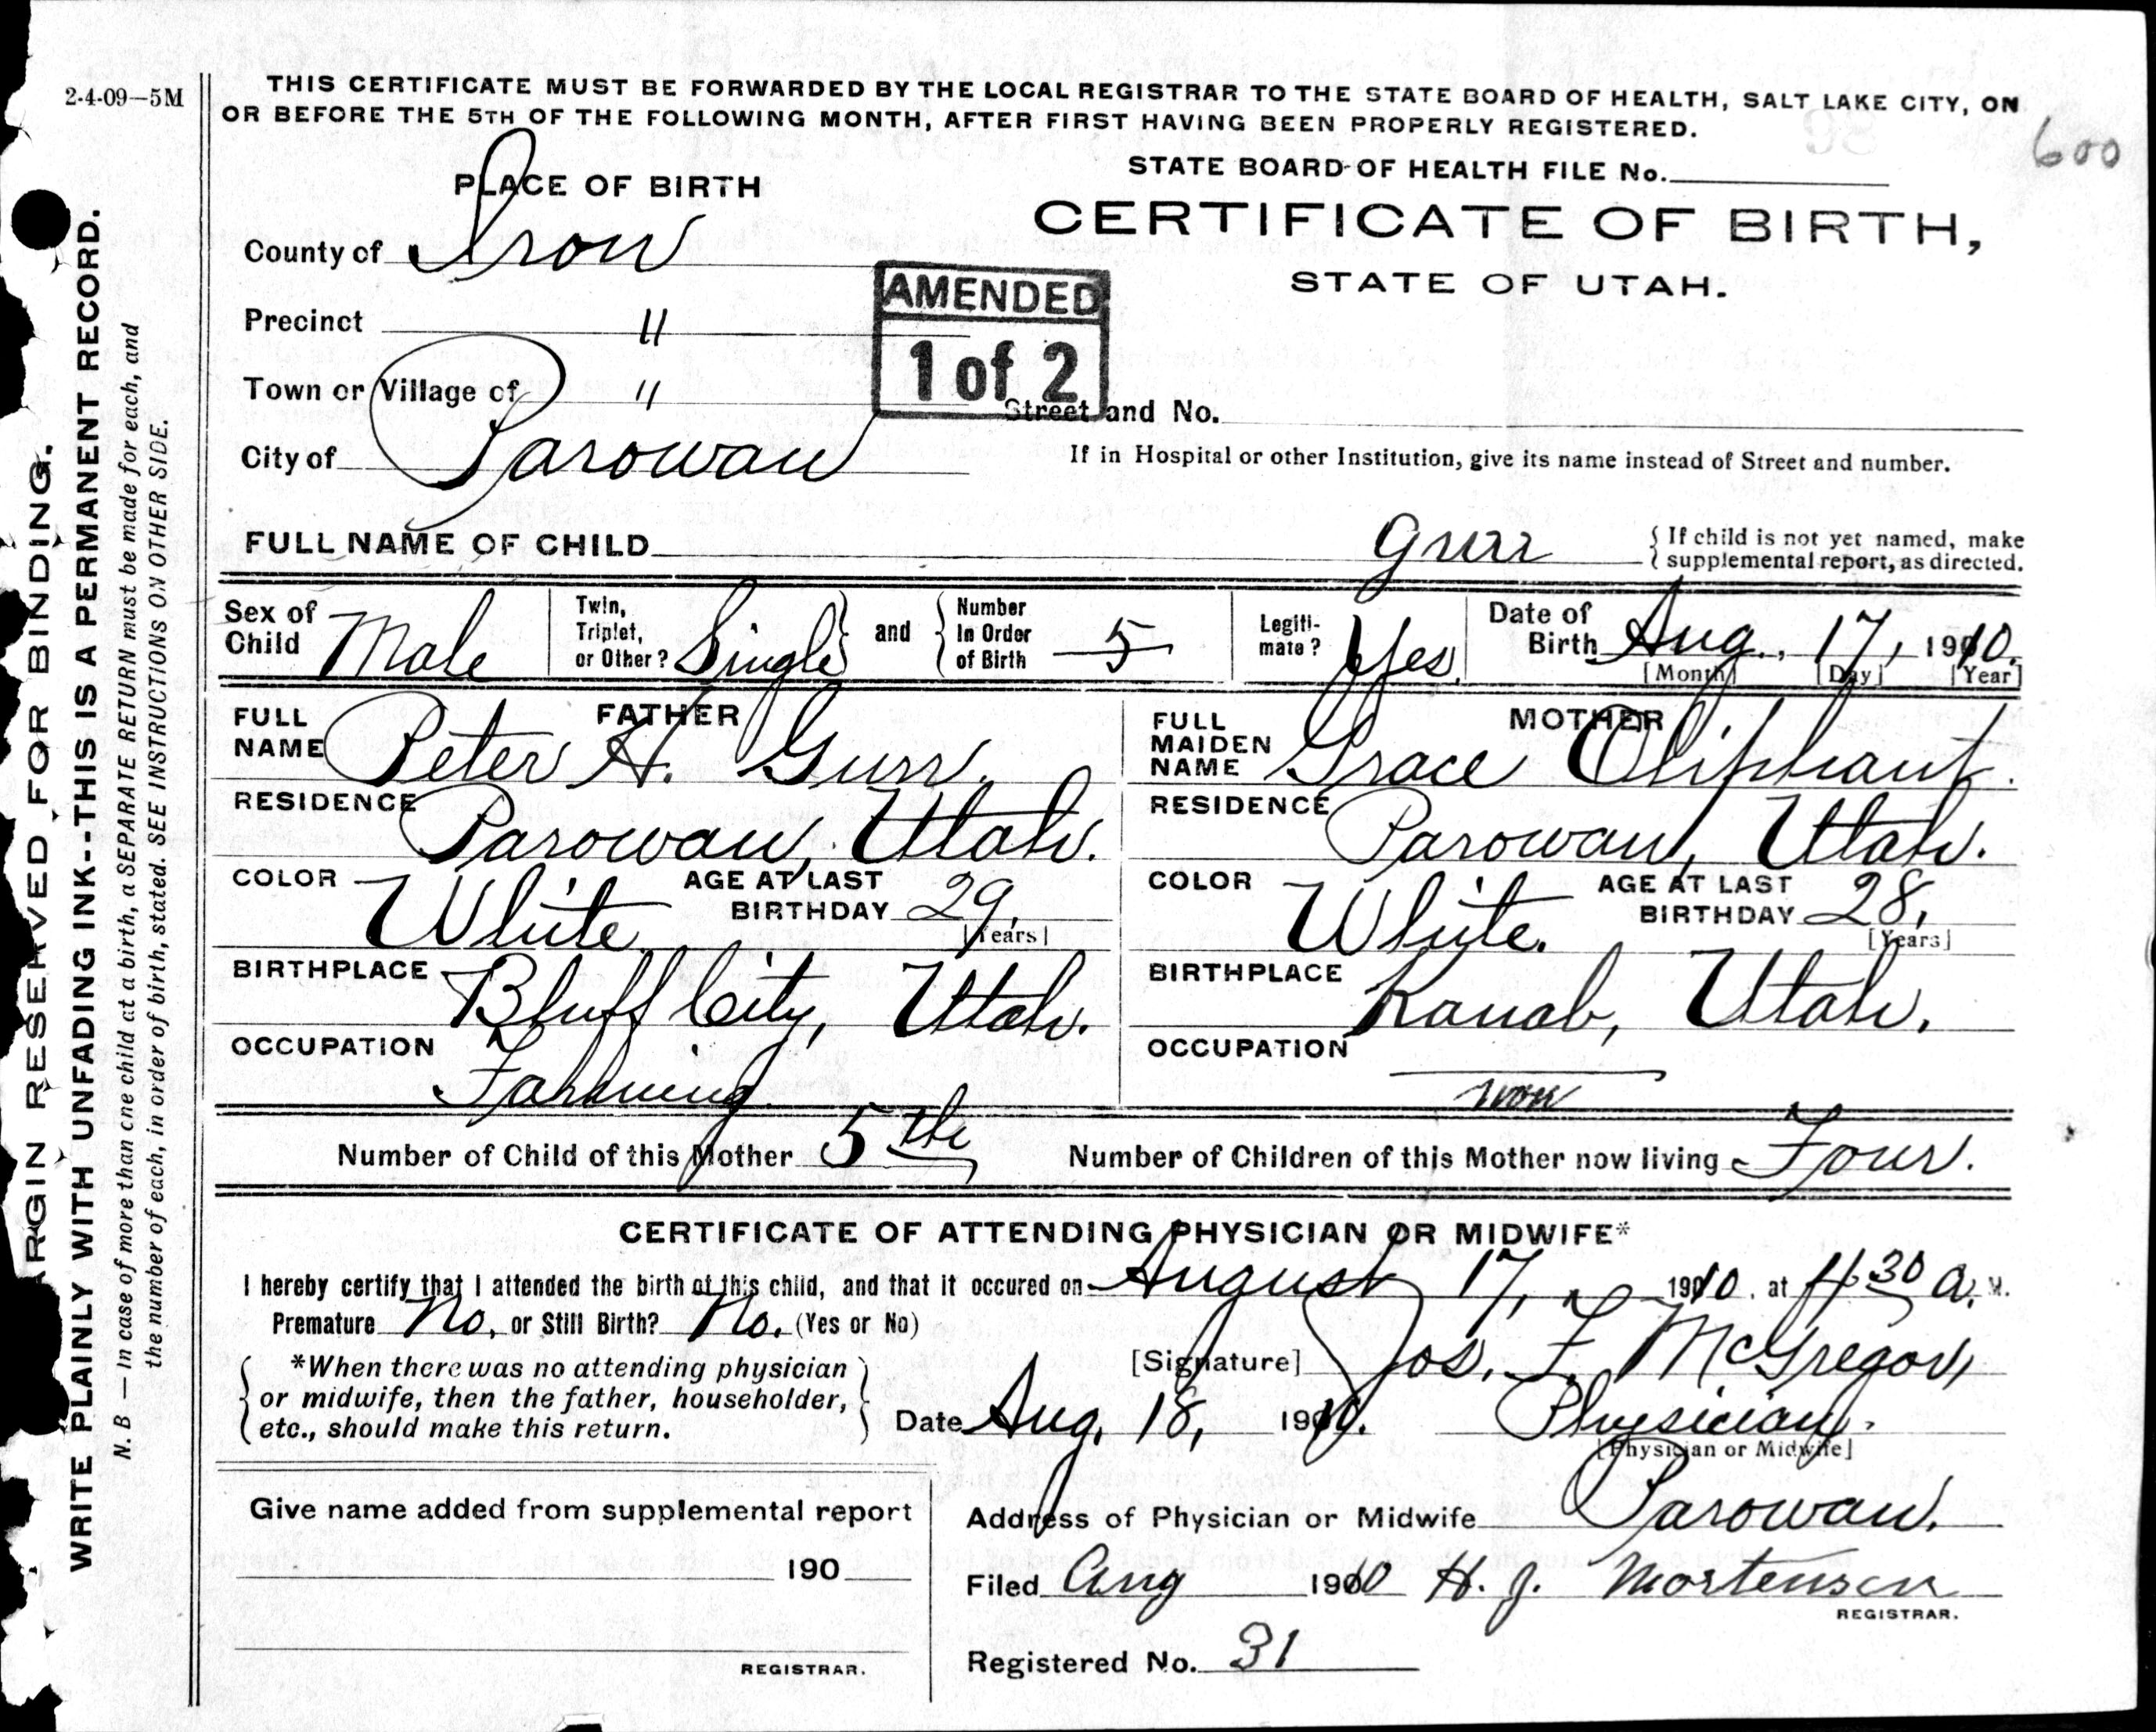 2-4-09—5M
THIS CERTIFICATE MUST BE FORWARDED BY THE LOCAL REGISTRAR TO THE STATE BOARD OF HEALTH, SALT LAKE CITY, ON
OR BEFORE THE 5TH OF THE FOLLOWING MONTH, AFTER FIRST HAVING BEEN PROPERLY REGISTERED.
600
STATE BOARD OF HEALTH FILE No.
PLACE OF BIRTH
CERTIFICATE OF BIRTH,
STATE OF UTAH.
County of Iron
Precinct "
Town or Village of "
City of Parowan
AMENDED
1 of 2
Street and No.
If in Hospital or other Institution, give its name instead of Street and number.
FULL NAME OF CHILD Gurr
{ If child is not yet named, make
supplemental report, as directed.
Sex of Child Male
Twin, Triplet, or Other? Single } and { Number In Order of Birth 5
Legiti-mate? Yes.
Date of Birth Aug., 17, 1910.
[Month] [Day] [Year]
FATHER
FULL NAME Peter H. Gurr.
RESIDENCE Parowan, Utah.
COLOR White AGE AT LAST BIRTHDAY 29,
[Years]
BIRTHPLACE Bluff City, Utah.
OCCUPATION Farming
MOTHER
FULL MAIDEN NAME Grace Oliphant.
RESIDENCE Parowan, Utah.
COLOR White. AGE AT LAST BIRTHDAY 28,
[Years]
BIRTHPLACE Kanab, Utah.
OCCUPATION
Number of Child of this Mother 5th Number of Children of this Mother now living Four.
CERTIFICATE OF ATTENDING PHYSICIAN OR MIDWIFE*
I hereby certify that I attended the birth of this child, and that it occured on August 17, 1910. at 4:30 a. M.
Premature No, or Still Birth? No. (Yes or No)
{ *When there was no attending physician
or midwife, then the father, householder,
etc., should make this return. }
[Signature] Jos. F. McGregor,
Date Aug. 18, 1910. Physician.
[Physician or Midwife]
Give name added from supplemental report
190
REGISTRAR.
Address of Physician or Midwife Parowan.
Filed Aug 1910 H. J. Mortensen
REGISTRAR.
Registered No. 31
ARGIN RESERVED FOR BINDING.
WRITE PLAINLY WITH UNFADING INK--THIS IS A PERMANENT RECORD.
N. B — In case of more than one child at a birth, a SEPARATE RETURN must be made for each, and
the number of each, in order of birth, stated. SEE INSTRUCTIONS ON OTHER SIDE.